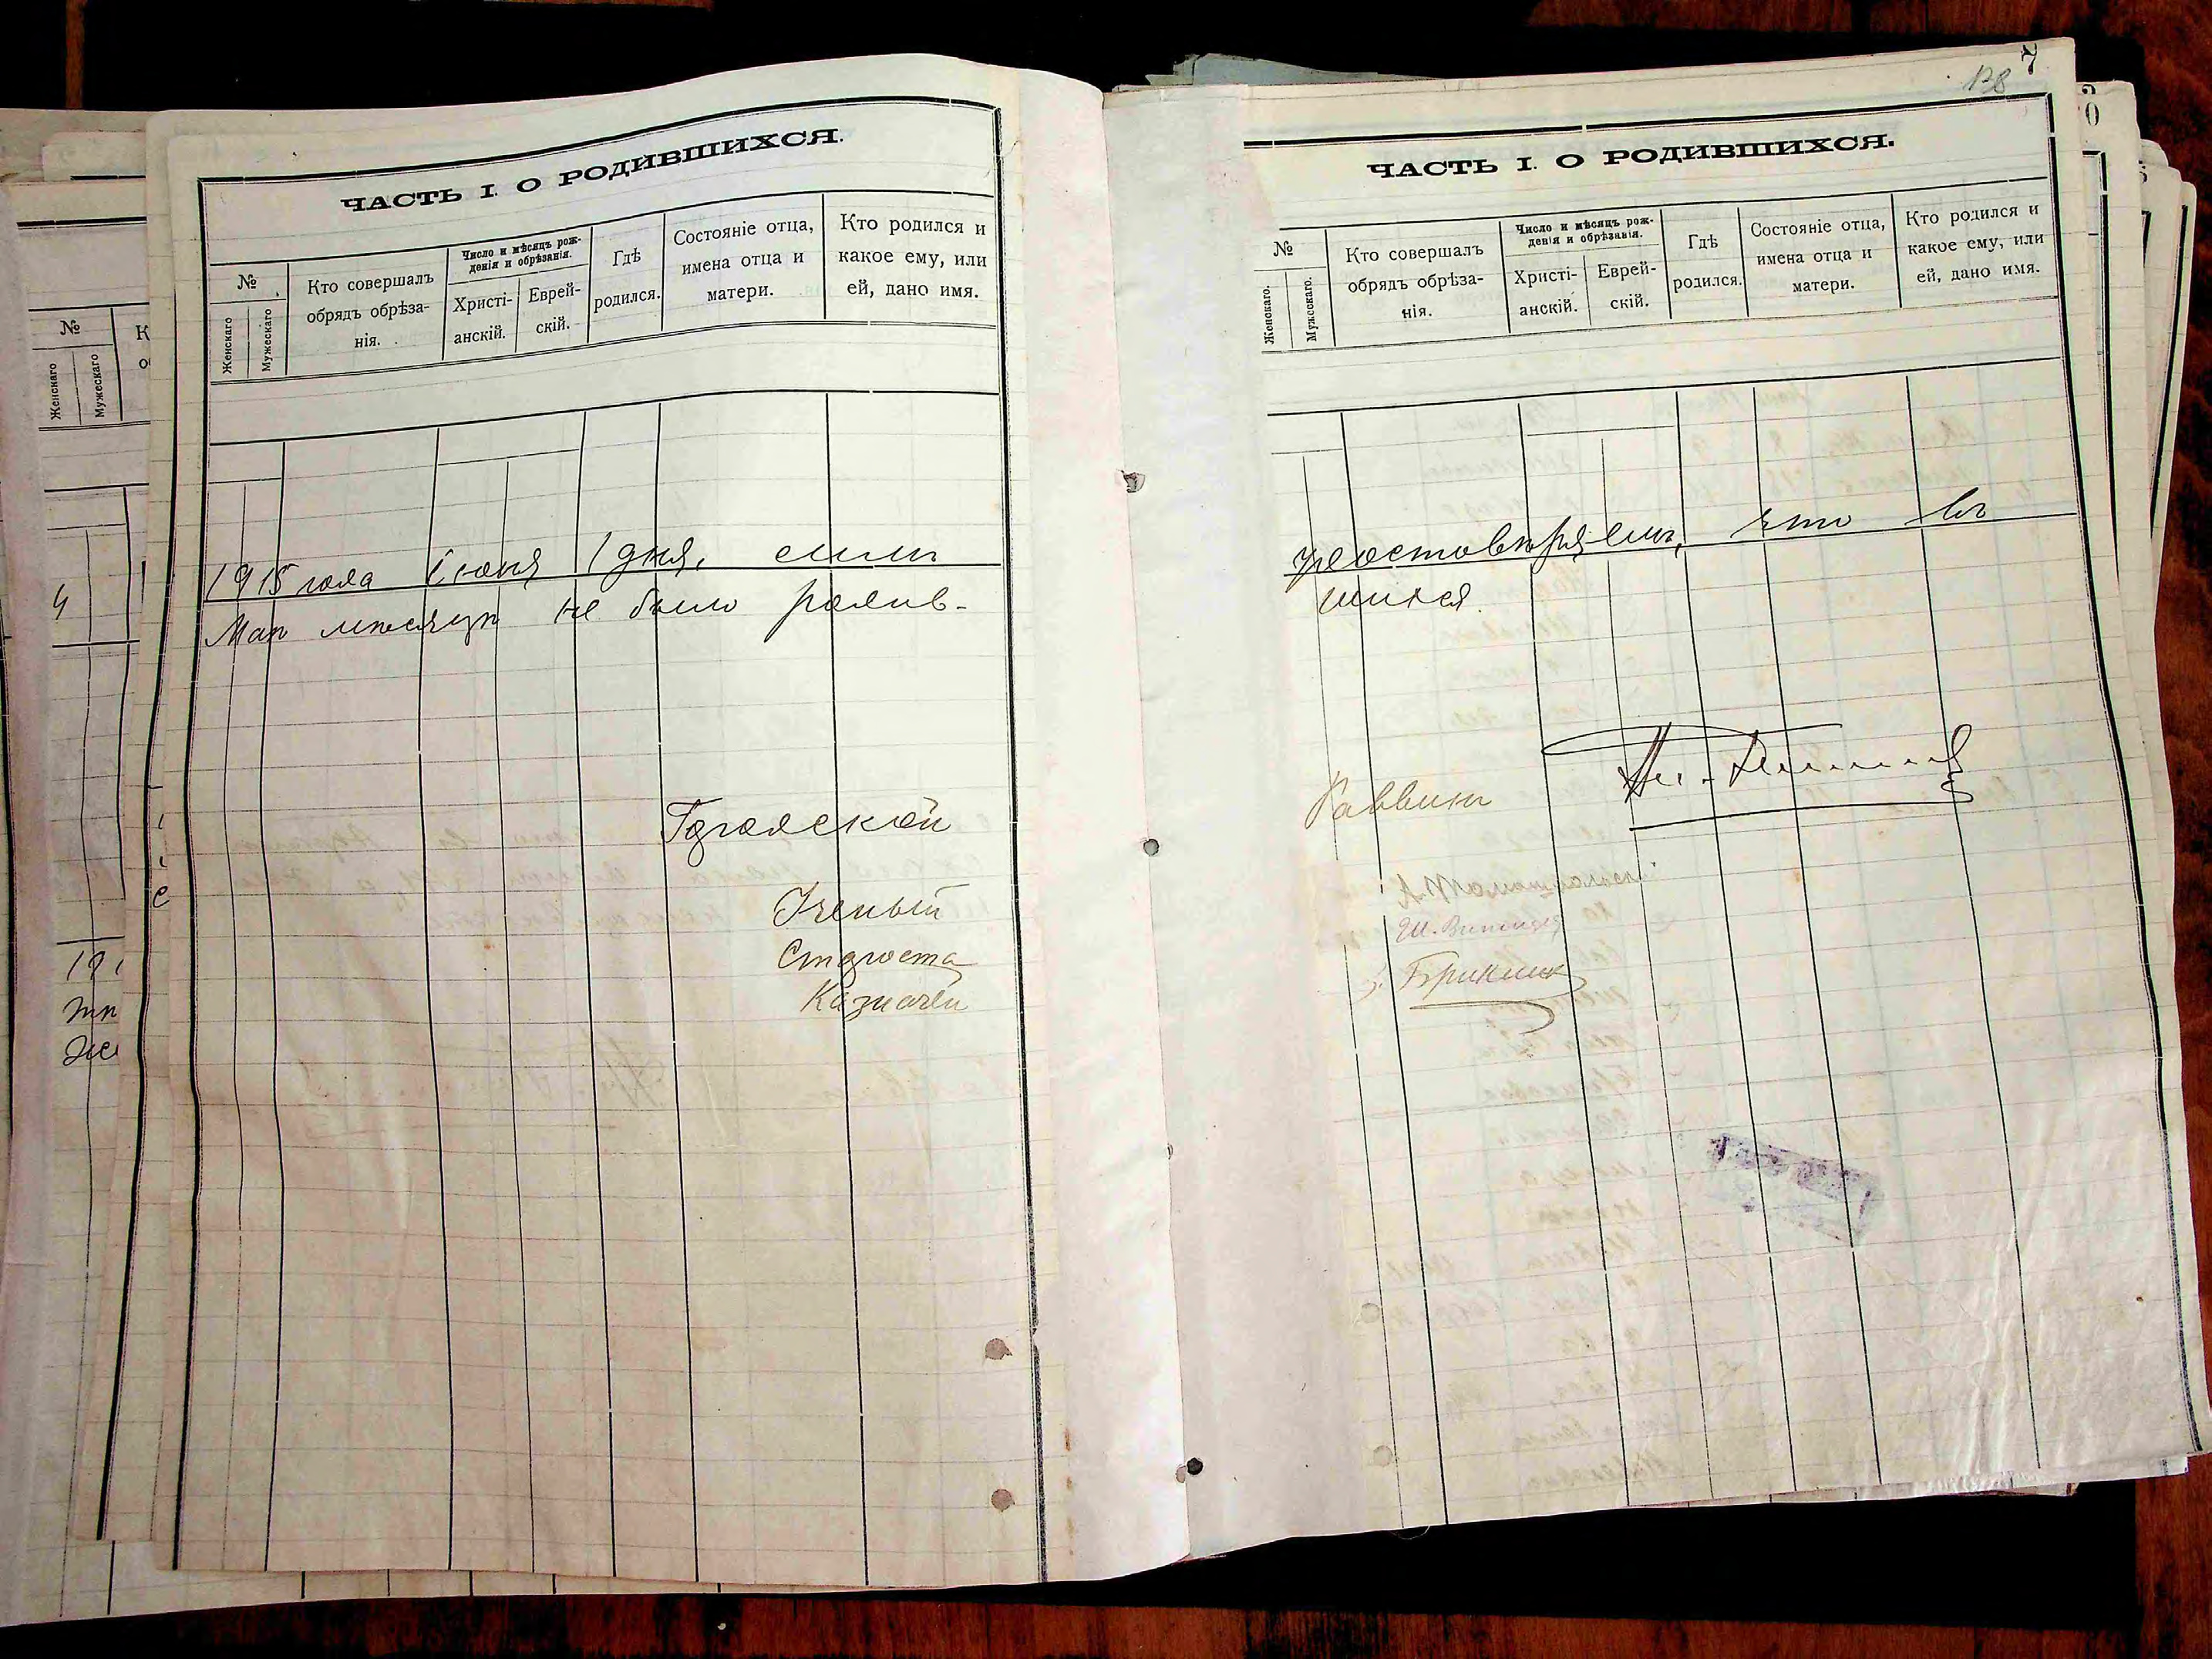 ЧАСТЬ I. О РОДИВШИХСЯ.
№
Женскаго
Мужескаго
Кто совершалъ
обрядъ обрѣза-
нія.
Число и мѣсяцъ рож-
денія и обрѣзанія.
Христі-
анскій.
Еврей-
скій.
Гдѣ
родился.
Состояніе отца,
имена отца и
матери.
Кто родился и
какое ему, или
ей, дано имя.
1915 года Іюня 1 дня, симъ
Маѣ мѣсяцѣ не было родив-
Городской
Ученый
Староста
Казначей
138
7
ЧАСТЬ I. О РОДИВШИХСЯ.
№
Женскаго.
Мужескаго.
Кто совершалъ
обрядъ обрѣза-
нія.
Число и мѣсяцъ рож-
денія и обрѣзанія.
Христі-
анскій.
Еврей-
скій.
Гдѣ
родился.
Состояніе отца,
имена отца и
матери.
Кто родился и
какое ему, или
ей, дано имя.
удостовѣряемъ, что въ
шихся.
Раввинъ
№
Женскаго
Мужескаго
4